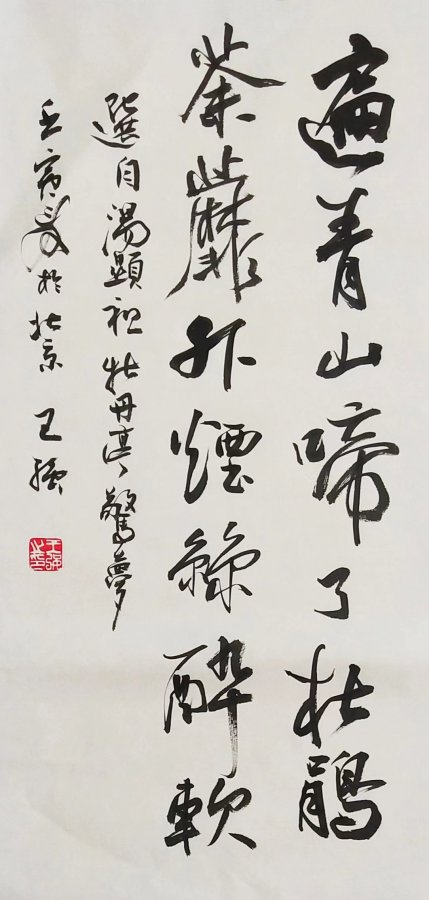 遍青山啼了杜鵑
荼蘼外煙絲醉軟
選自湯顯祖牡丹亭驚夢
壬寅於北京 王強
王強之印